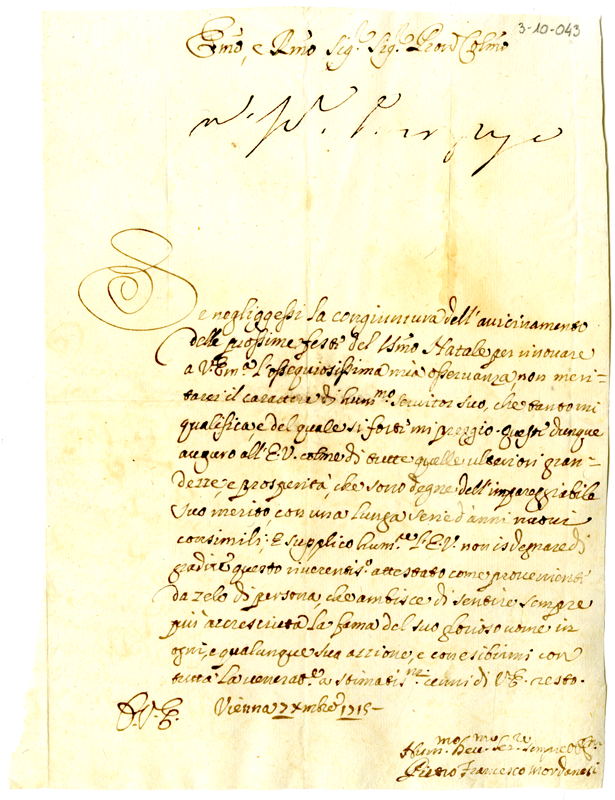 3-10-043
Emõ, e Rmõ Sig.r Sig.r Prõn Colmõ
Se negligessi la congiuntura dell'avicinamento
delle prossime feste del SSmõ Natale per rinovare
a V. Em.a l'ossequiosissima mia osservanza, non meri-
tarei il carattere di hum.mo servitor suo, che tanto mi
qualifica, e del quale si forte mi pregio. Queste dunque
auguro all'E.V. colme di tutte quelle ulteriori gran-
dezze, e prosperità, che sono degne dell'impareggiabile
suo merito, con una lunga serie d'anni
consimili; E supplico hum.e l'E.V. non isdegnare di
gradire questo riverentis.o attestato come proveniente
da zelo di persona, che ambisce di sentire sempre
più accresciuta la fama del suo glorioso nome in
ogni, e qualunque sua azzione, e con esibirmi con
tutta la venerat.e a stimatis.mi cenni di V.E. resto.
Vienna 7 Xmbre 1715-
D.V.E.
Hum.mo Dev.mo Ser.re
Pietro Francesco Mordanesi